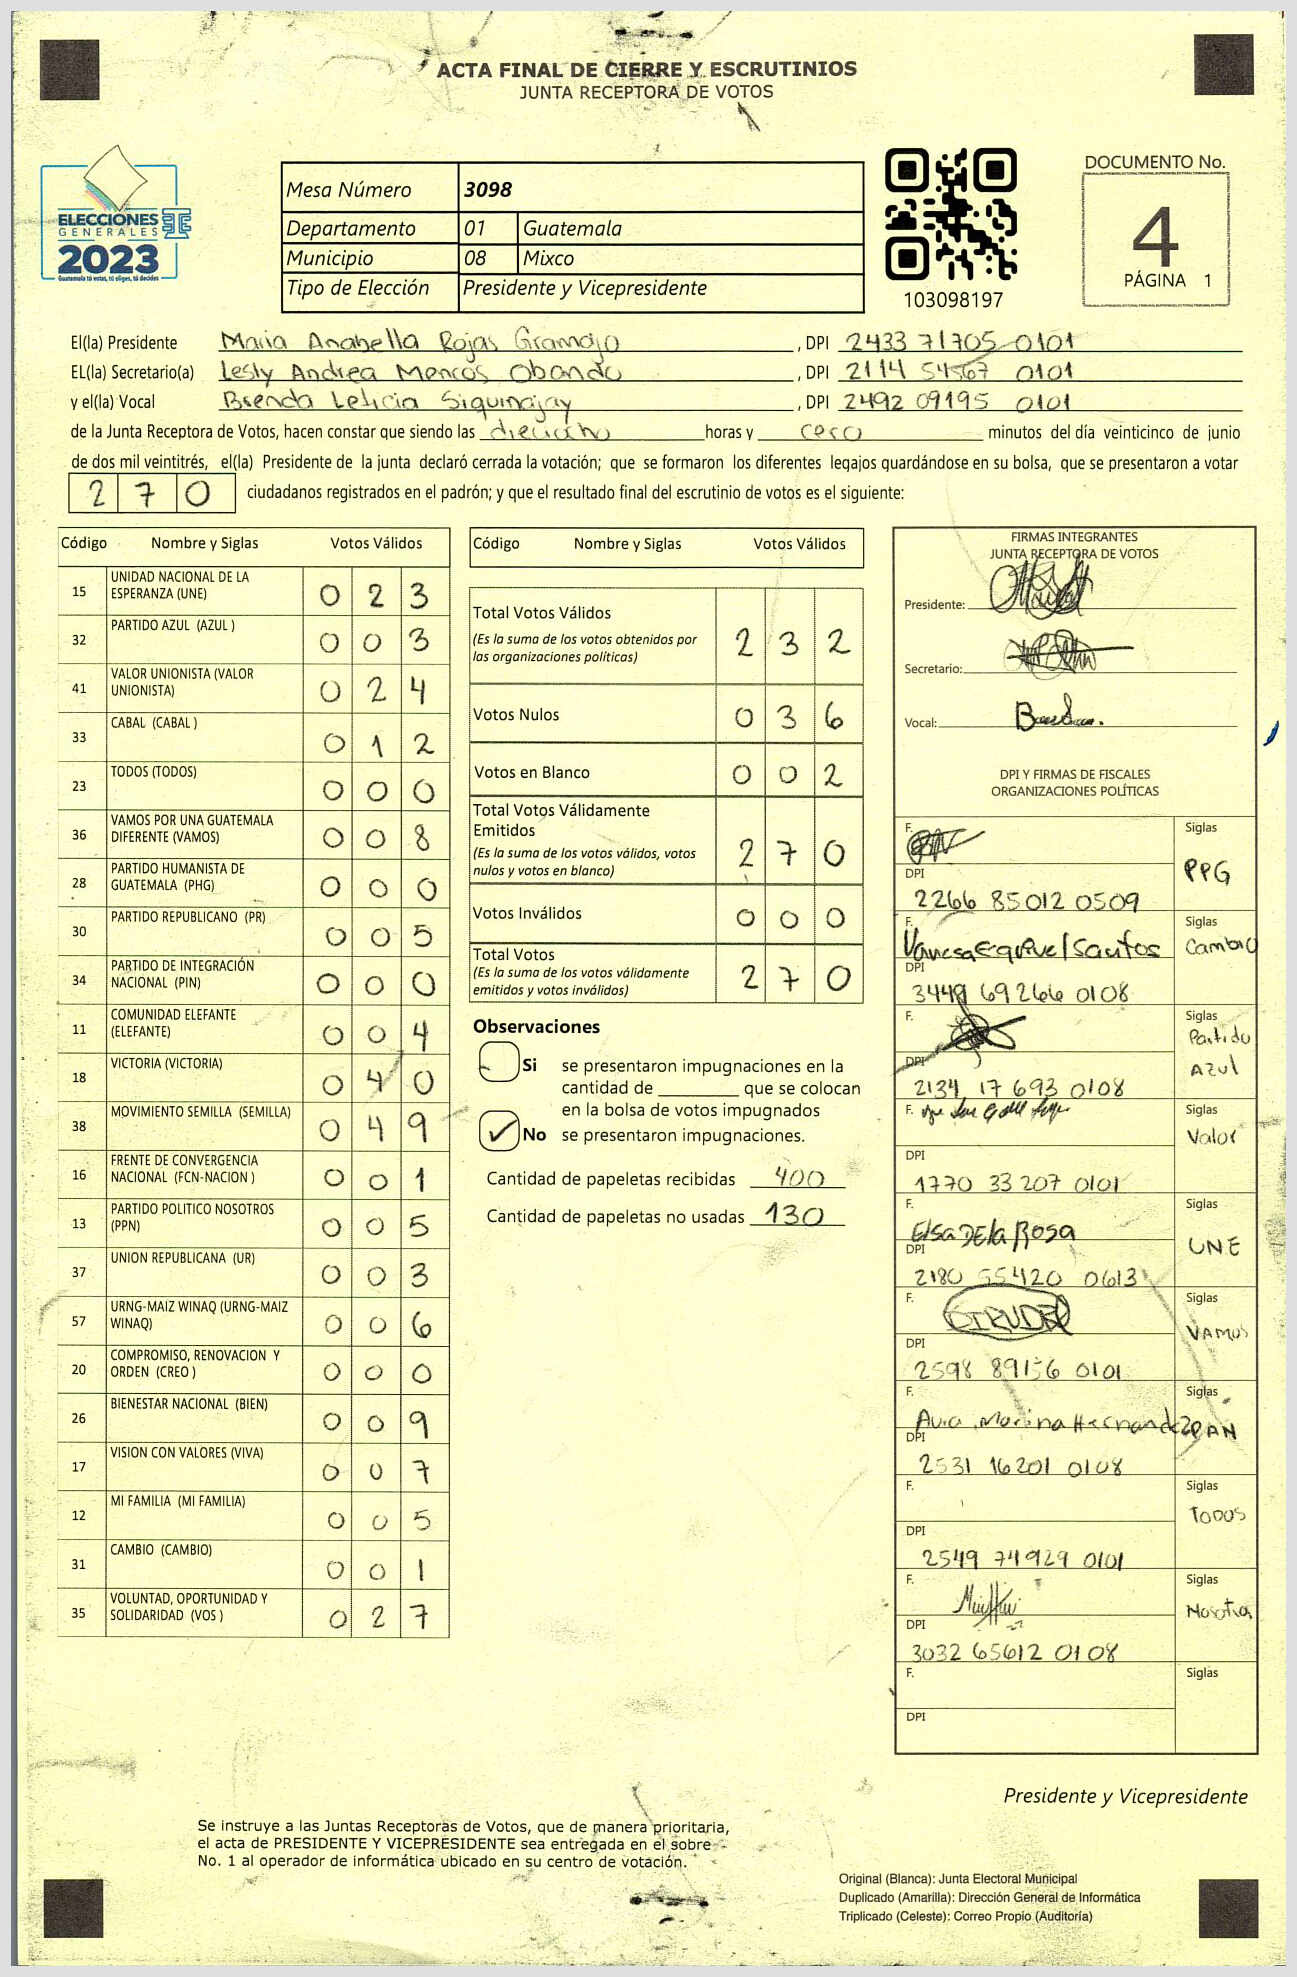 ACTA FINAL DE CIERRE Y ESCRUTINIOS
JUNTA RECEPTORA DE VOTOS
ELECCIONES
GENERALES
2023
Guatemala tú votas, tú eliges, tú decides
Mesa Número 3098
Departamento 01 Guatemala
Municipio 08 Mixco
Tipo de Elección Presidente y Vicepresidente
103098197
DOCUMENTO No.
4
PÁGINA 1
El(la) Presidente Maria Anabella Rojas Gramajo, DPI 2433 71705 0101
EL(la) Secretario(a) Lesly Andrea Mencos Obando, DPI 2114 54567 0101
y el(la) Vocal Brenda Leticia Siquinajay, DPI 2492 09195 0101
de la Junta Receptora de Votos, hacen constar que siendo las dieciocho horas y cero minutos del día veinticinco de junio
de dos mil veintitrés, el(la) Presidente de la junta declaró cerrada la votación; que se formaron los diferentes legajos guardándose en su bolsa, que se presentaron a votar
270 ciudadanos registrados en el padrón; y que el resultado final del escrutinio de votos es el siguiente:
Código Nombre y Siglas Votos Válidos
15 UNIDAD NACIONAL DE LA ESPERANZA (UNE) 0 2 3
32 PARTIDO AZUL (AZUL ) 0 0 3
41 VALOR UNIONISTA (VALOR UNIONISTA) 0 2 4
33 CABAL (CABAL ) 0 1 2
23 TODOS (TODOS) 0 0 0
36 VAMOS POR UNA GUATEMALA DIFERENTE (VAMOS) 0 0 8
28 PARTIDO HUMANISTA DE GUATEMALA (PHG) 0 0 0
30 PARTIDO REPUBLICANO (PR) 0 0 5
34 PARTIDO DE INTEGRACIÓN NACIONAL (PIN) 0 0 0
11 COMUNIDAD ELEFANTE (ELEFANTE) 0 0 4
18 VICTORIA (VICTORIA) 0 4 0
38 MOVIMIENTO SEMILLA (SEMILLA) 0 4 9
16 FRENTE DE CONVERGENCIA NACIONAL (FCN-NACION ) 0 0 1
13 PARTIDO POLITICO NOSOTROS (PPN) 0 0 5
37 UNION REPUBLICANA (UR) 0 0 3
57 URNG-MAIZ WINAQ (URNG-MAIZ WINAQ) 0 0 6
20 COMPROMISO, RENOVACION Y ORDEN (CREO ) 0 0 0
26 BIENESTAR NACIONAL (BIEN) 0 0 9
17 VISION CON VALORES (VIVA) 0 0 7
12 MI FAMILIA (MI FAMILIA) 0 0 5
31 CAMBIO (CAMBIO) 0 0 1
35 VOLUNTAD, OPORTUNIDAD Y SOLIDARIDAD (VOS ) 0 2 7
Código Nombre y Siglas Votos Válidos
Total Votos Válidos 2 3 2
(Es la suma de los votos obtenidos por
las organizaciones políticas)
Votos Nulos 0 3 6
Votos en Blanco 0 0 2
Total Votos Válidamente
Emitidos 2 7 0
(Es la suma de los votos válidos, votos
nulos y votos en blanco)
Votos Inválidos 0 0 0
Total Votos 2 7 0
(Es la suma de los votos válidamente
emitidos y votos inválidos)
Observaciones
Si se presentaron impugnaciones en la
cantidad de ________ que se colocan
en la bolsa de votos impugnados
No se presentaron impugnaciones.
Cantidad de papeletas recibidas 400
Cantidad de papeletas no usadas 130
FIRMAS INTEGRANTES
JUNTA RECEPTORA DE VOTOS
Presidente:
Secretario:
Vocal:
DPI Y FIRMAS DE FISCALES
ORGANIZACIONES POLÍTICAS
F. Siglas
PPG
DPI
2266 85012 0509
F. Vanesa Esquivel Santos Siglas
Cambio
DPI
3449 69266 0108
F. Siglas
Partido
Azul
DPI
2134 17 693 0108
F. Siglas
Valor
DPI
1770 33 207 0101
F. Siglas
Elsa De la Rosa
UNE
DPI
2180 55420 0613
F. Siglas
VAMOS
DPI
2598 89156 0101
F. Siglas
Marina Hernandez PAN
DPI
2531 16201 0108
F. Siglas
TODOS
DPI
2549 74929 0101
F. Siglas
DPI
3032 65612 0108
F. Siglas
DPI
Presidente y Vicepresidente
Se instruye a las Juntas Receptoras de Votos, que de manera prioritaria,
el acta de PRESIDENTE Y VICEPRESIDENTE sea entregada en el sobre
No. 1 al operador de informática ubicado en su centro de votación.
Original (Blanca): Junta Electoral Municipal
Duplicado (Amarilla): Dirección General de Informática
Triplicado (Celeste): Correo Propio (Auditoría)